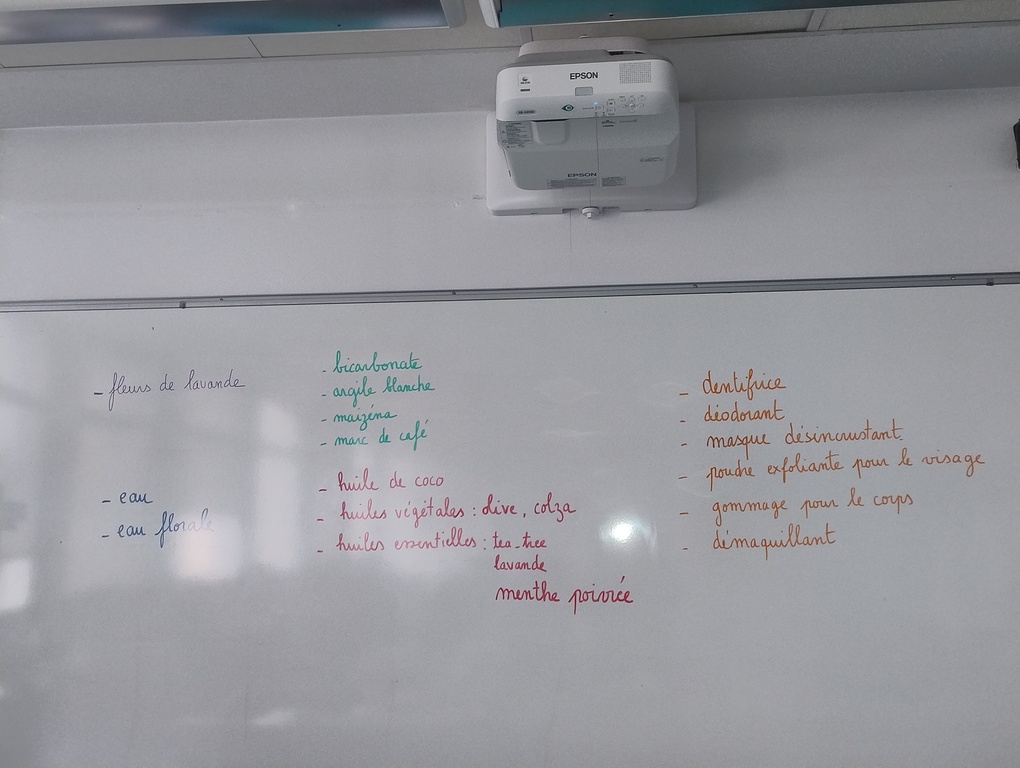 EPSON
EPSON
- fleurs de lavande
- eau
- eau florale
- bicarbonate
- argile blanche
- maïzéna
- marc de café
- huile de coco
- huiles végétales : olive, colza
- huiles essentielles : tea-tree
lavande
menthe poivrée
- dentifrice
- déodorant
- masque désincrustant
- poudre exfoliante pour le visage
- gommage pour le corps
- démaquillant